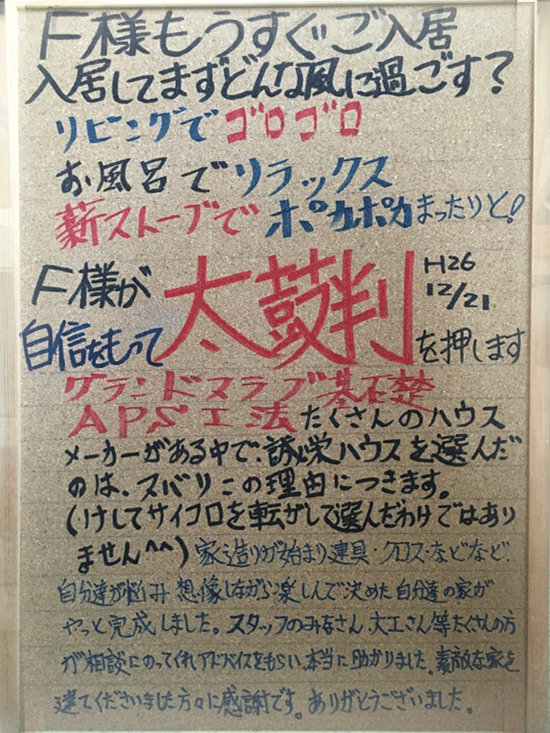 F様もうすぐご入居
入居してまずどんな風に過ごす?
リビングでゴロゴロ
お風呂でリラックス
薪ストーブでポカポカまったりと!
F様が
自信をもって太鼓判を押します
H26
12/21
グランドスラブ基石楚
APS工法たくさんのハウス
メーカーがある中で、誘栄ハウスを選んだ
のは、ズバリこの理由につきます。
(けしてサイコロを転がして選んだわけではあり
ません^^)家造りが始まり建具・クロス・などなど、
自分達が悩み想像しながら楽しんで決めた自分達の家が
やっと完成しました。スタッフのみなさん大工さん等たくさんの方
が相談にのってくれアドバイスをもらい、本当に助かりました。素敵な家を
建てくださいました方々に感謝です。ありがとうございました。